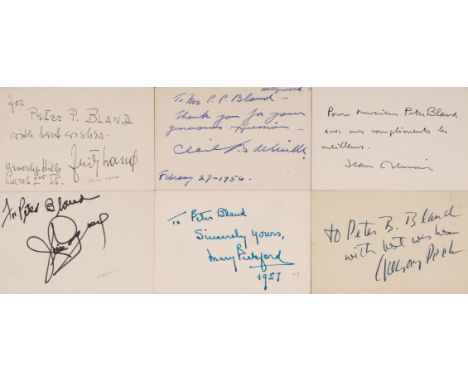 For
PETER P. BLAND
with best wishes.
Beverly Hills
March 2nd 55. Fritz Lang
Hollywood -
To Mr P. P. Bland -
Thank you for your
generous expression -
Cecil B deMille
February 27 - 1956.
Pour Monsieur Peter Bland
avec mes compliments les
meilleurs.
Jean Renoir
To Peter Bland
To Peter Bland
Sincerely yours,
Mary Pickford
1957
to Peter B. Bland
with best wishes
Gregory Peck